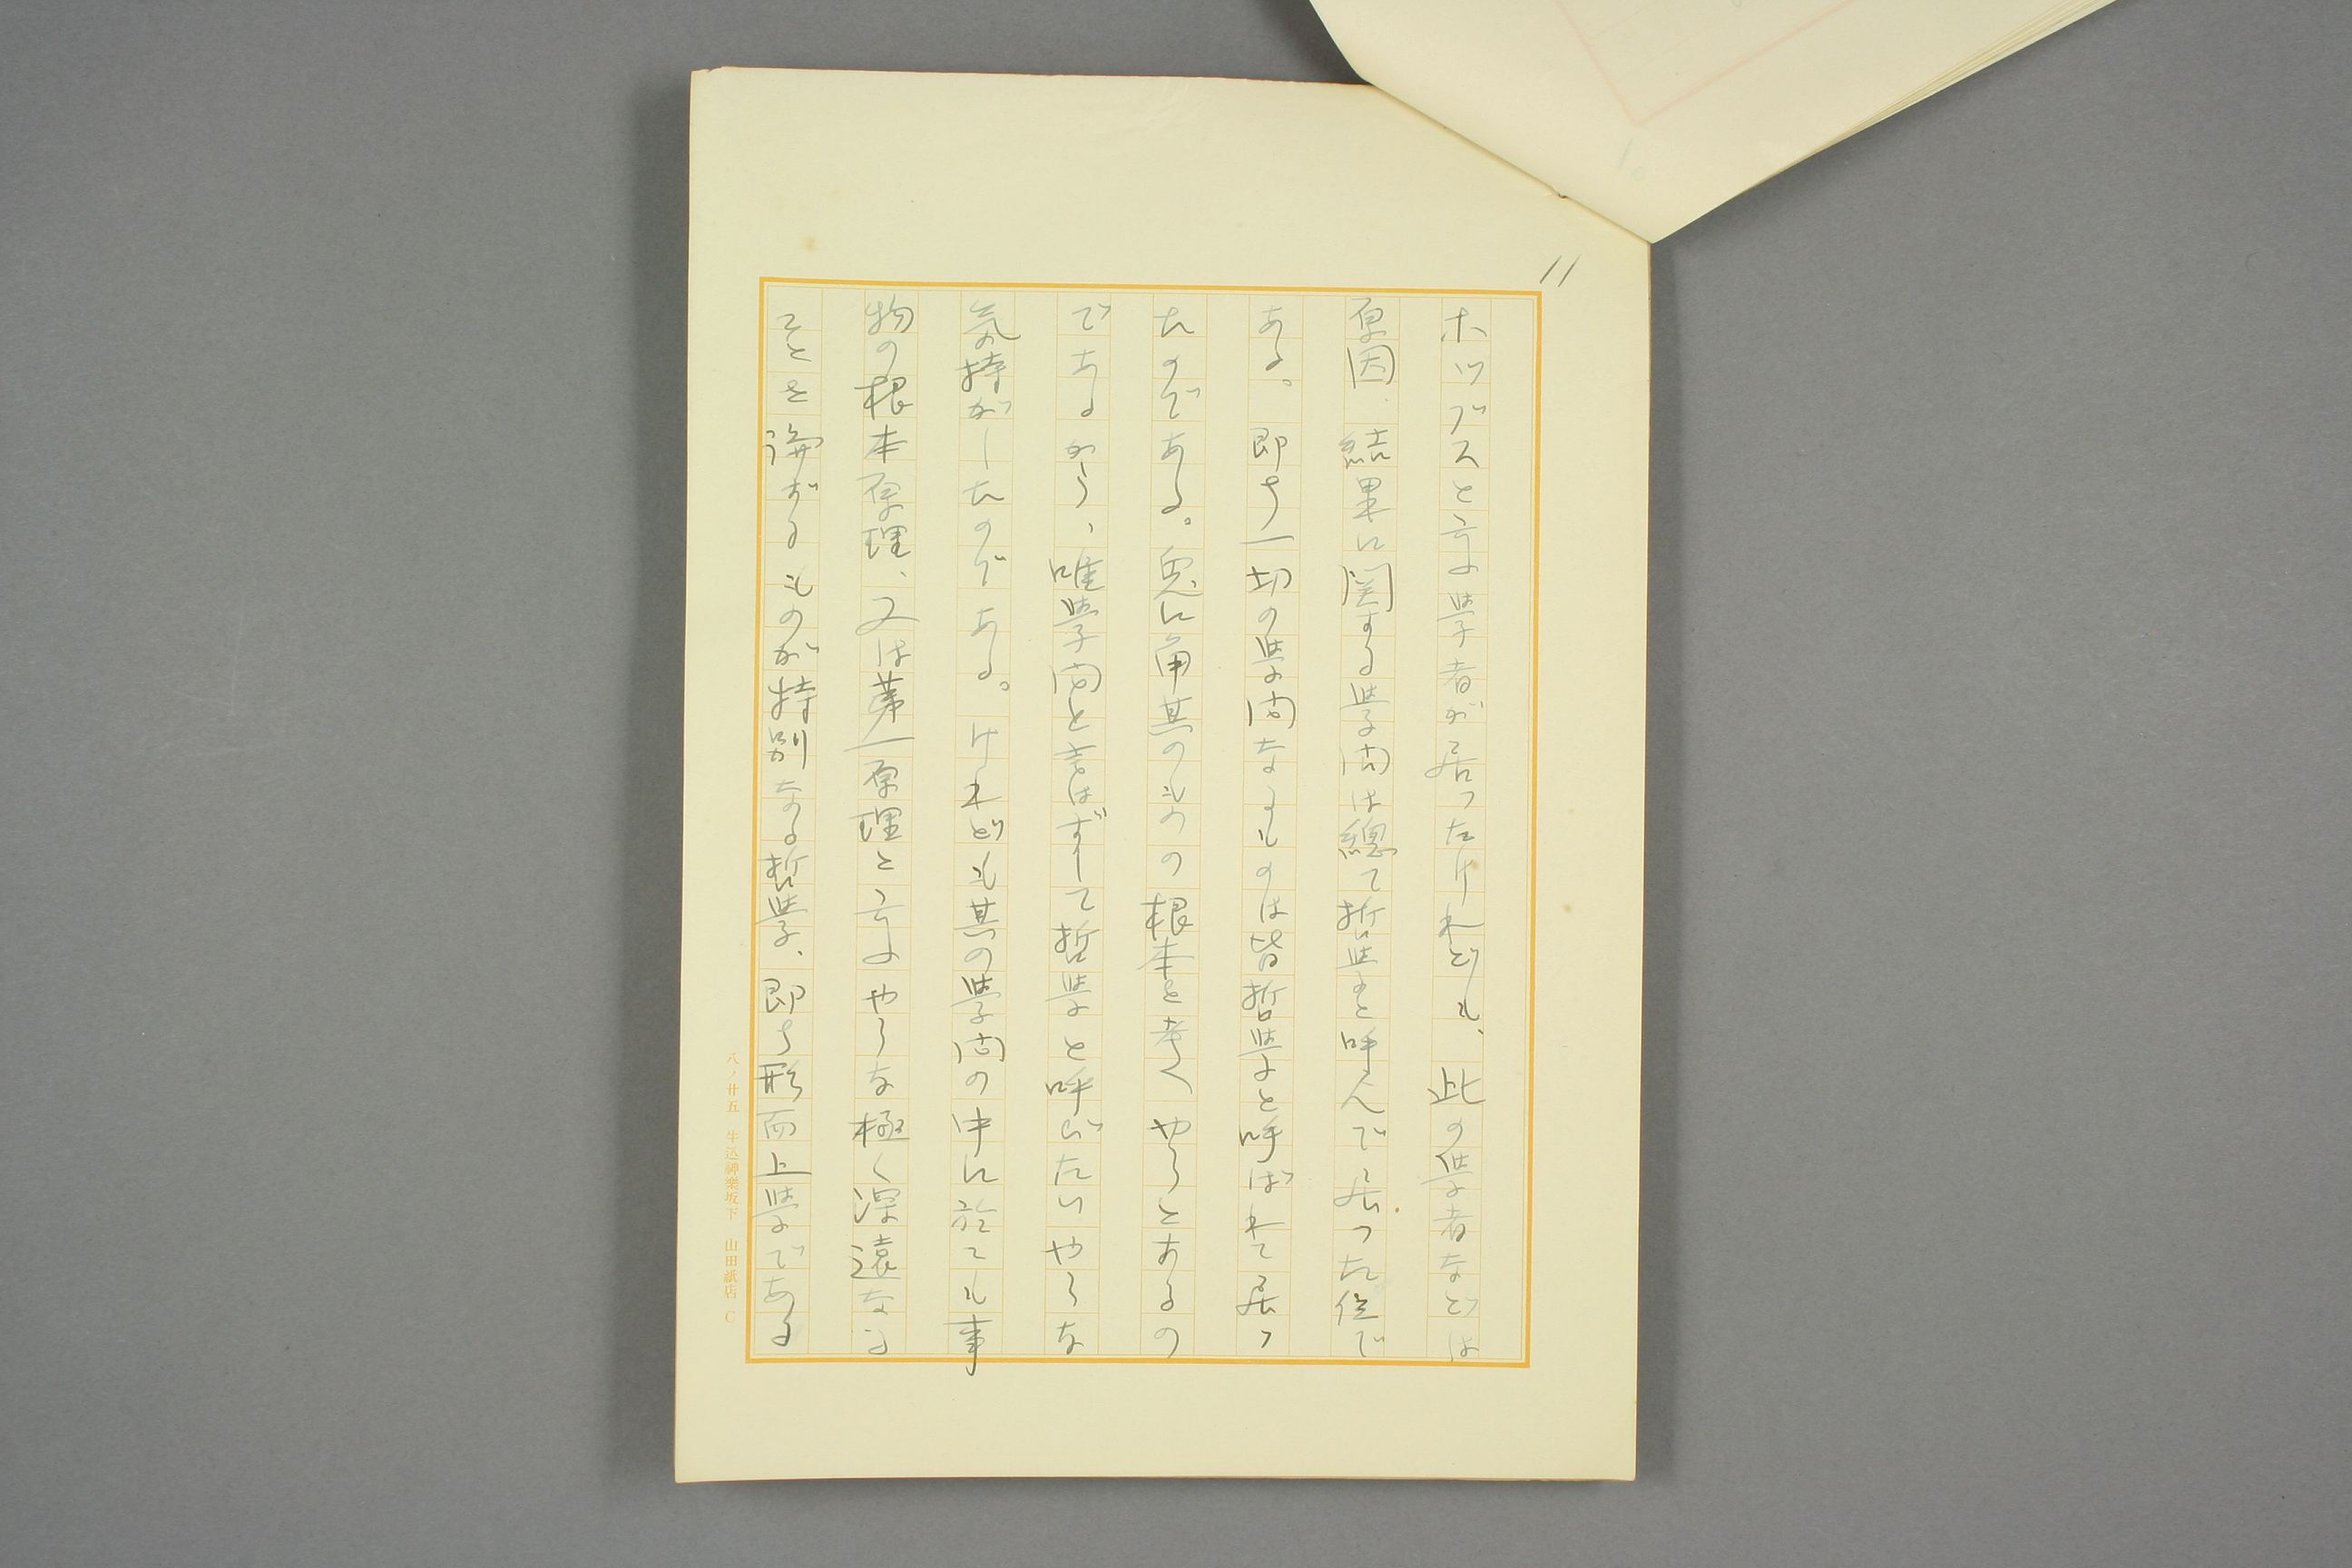 11
ホッブスと云ふ學者が居ったけれども、此の學者などは
原因、結果に関する學问は總て哲學と呼んで居った位で
ある。即ち一切の學问なるものは皆哲學と呼ばれて居っ
たのである。兎に角其のものの根本を考へやうとあるの
であるから、唯學问と言はずして哲學と呼びたいやうな
気持がしたのである。けれども其の學问の中に於ても事
物の根本原理、又は第一原理と云ふやうな極く深遠なる
ことを論ずるものが特別なる哲學、即ち形而上學である
八ノ廿五 牛込神樂坂下 山田紙店 C
10